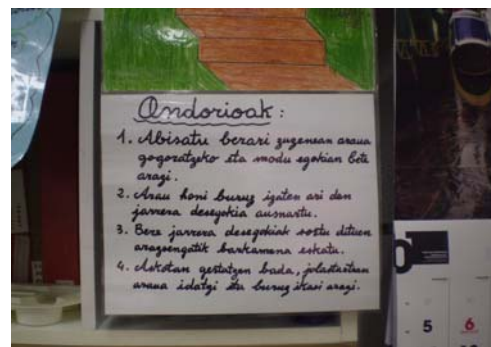 Ondorioak:
1. Abisatu berari zuzenean araua
gogoratzeko eta modu egokian bete
arazi.
2. Arau honi buruz izaten ari den
jarrera desegokia ausnartu.
3. Bere jarrera desegokiak sortu dituen
arazoengatik barkamena eskatu.
4. Askotan gertatzen bada, jolastutzan
araua idatzi eta buruz ikasi arazi.
5 6